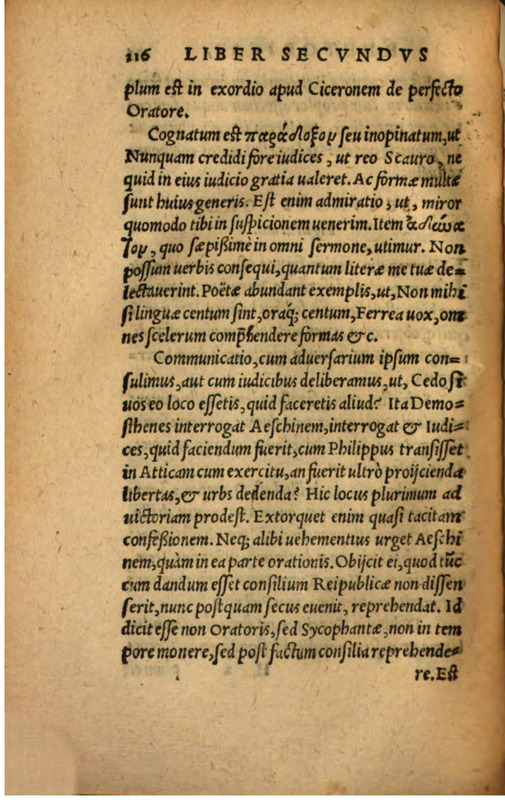 116 LIBER SECVNDVS
plum est in exordio apud Ciceronem de perfecto
Oratore.
Cognatum est παράδοξον seu inopinatum, ut
Nunquam credidi fore iudices, ut reo Scauro, ne
quid in eius iudicio gratia ualeret. Ac formæ multæ
sunt huius generis. Est enim admiratio, ut, miror
quomodo tibi in suspicionem uenerim. Item ἀδύνα
τον, quo sæpißime in omni sermone, utimur. Non
possum uerbis consequi, quantum literæ me tuæ de=
lectauerint. Poëtæ abundant exemplis, ut, Non mihi
si linguæ centum sint, oraq; centum, Ferrea uox, om
nes scelerum comp̃hendere formas &c.
Communicatio, cum aduersarium ipsum con=
sulimus, aut cum iudicibus deliberamus, ut, Cedo si
uos eo loco essetis, quid faceretis aliud? Ita Demo=
sthenes interrogat Aeschinem, interrogat & Iudi=
ces, quid faciendum fuerit, cum Philippus transisset
in Atticam cum exercitu, an fuerit ultrò proijcienda
libertas, & urbs dedenda? Hic locus plurimum ad
uictoriam prodest. Extorquet enim quasi tacitam
confeßionem. Neq; alibi uehementius urget Aeschi
nem, quàm in ea parte orationis. Obijcit ei, quod tũc
cum dandum esset consilium Reipublicæ non dissen
serit, nunc postquam secus euenit, reprehendat. Id
dicit esse non Oratoris, sed Sycophantæ, non in tem
pore monere, sed post factum consilia reprehende=
re. Est